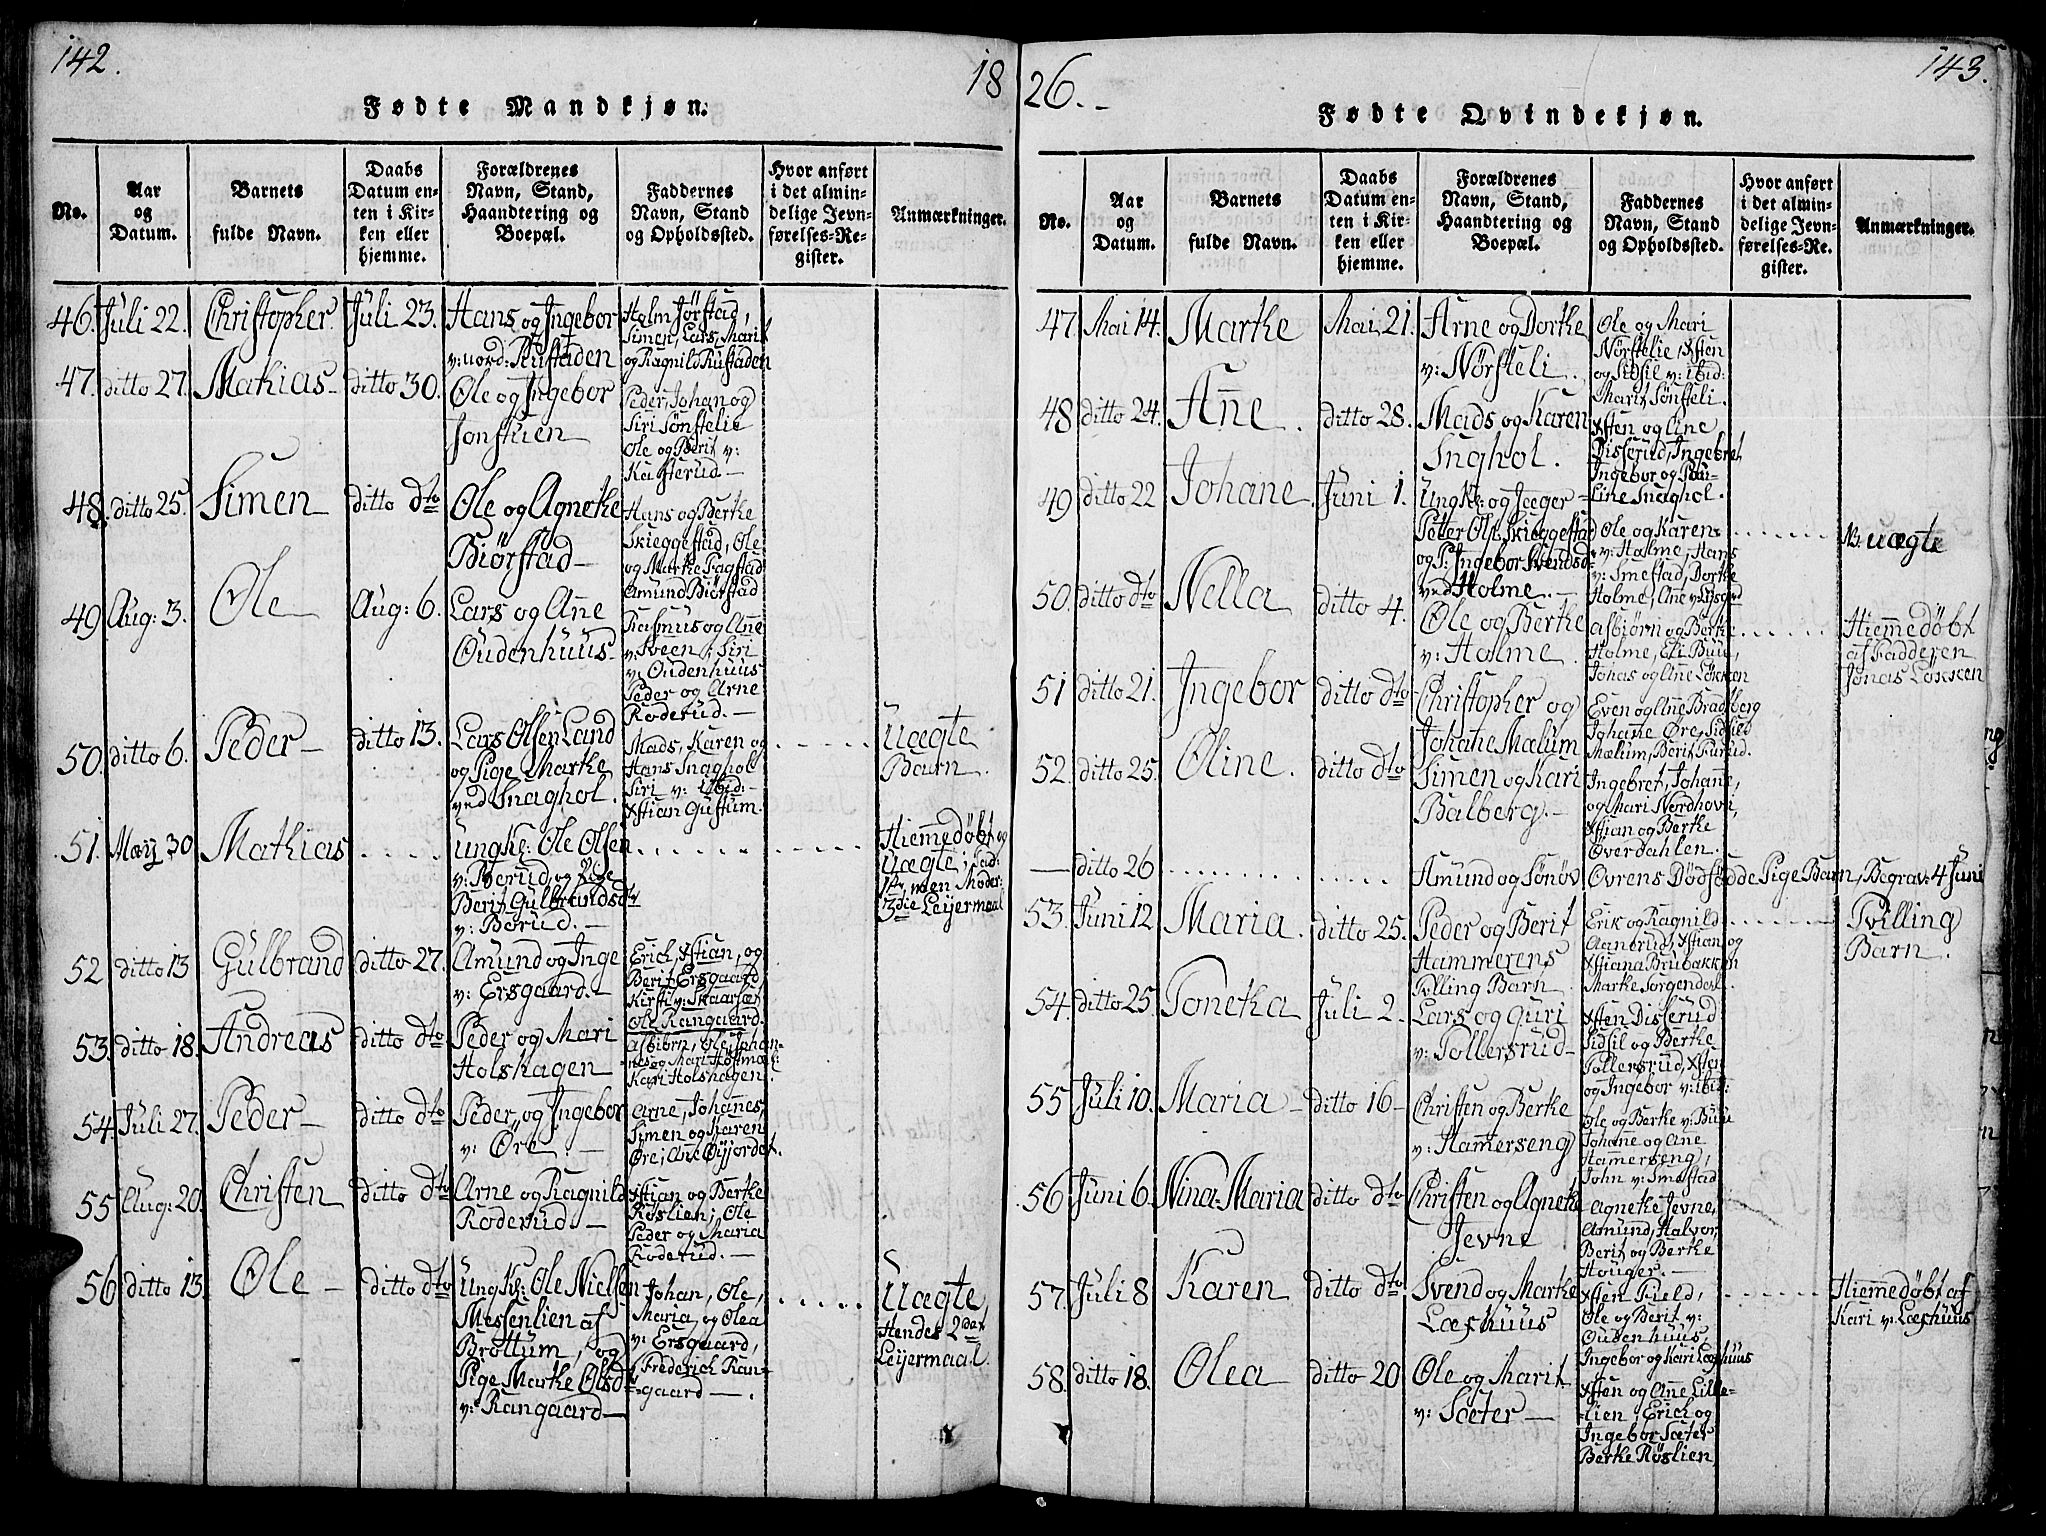 142.
18
Fødte Mandkjøn.
No.
Aar
og
Datum.
Barnets
fulde Navn.
Daabs
Datum en-
ten i Kir-
ken eller
hjemme.
Forældrenes
Navn, Stand,
Haandtering og
Boepæl.
Faddernes
Navn, Stand
og Opholdssted.
Hvor anført
i det almin-
delige Jevn-
førelses-Re-
gister.
Anmærkninger.
46. Juli 22. Christopher. Juli 23.
Hans og Ingebor
v: nord: Rustaden
Halm Jørstad,
Simen, Lars, Marit
og Ragnild Rustaden
47. ditto 27. Mathias- ditto 30.
Ole og Ingebor
Jonstuen
Peder, Johan og
Siri Sønstelie
Ole og Berit v:
48. ditto 25. Simen ditto dto
Ole og Agnethe
Biörstad-
Hans og Berthe
Skieggestad, Ole
og Marthe Fagstad
Amund Biörstad
49 Aug: 3. Ole Aug: 6.
Lars og Ane
Oudenhuus.
Rasmus og Anne
v: Sveen, Siri
v: Oudenhuus
Peder og Arne
Roderud.-
50. ditto 6. Peder- ditto 13.
Lars Olsen Land
og Pige Marthe
ved Snaghol.
Mads, Karen og
Hans Snaghol
Siri v: ibid:
Xstian Gustum.
Uægte
Barn.
51. May 30 Mathias
Ungk: Ole Olsen
v: Berud, og Pige
Berit Gulbrandsdtr
v: Borud.-
Hiemmedøbt og
Uægte; Fad:
1te, men Moder:
3die Leyermaal
52 ditto 13 Gulbrand ditto 27.
Amund og Inge
v: Ersgaard.-
Erich, Xstian, og
Berit Ersgaard
Kirsti v: Skaarset
Ole Rangaard.
53. ditto 18. Andreas ditto dto
Peder og Mari
Holshagen
Asbiörn, Ole, Johan-
nes og Mari
Kari Holshagen.
54. Juli 27. Peder- ditto dto
Peder, og Ingebor
v: Öre.-
Arne, Johannes,
Simen og Karen
Öre; Ane Öyjordet.
55 Aug: 20. Christen ditto dto
Arne og Ragnild
Roderud.-
Xstian og Berthe
Røslien; Ole
Peder og Maria
Roderud.-
56 ditto 13. Ole- ditto dto
Ungk: Ole Nielsen
Messenlien af
Brottum, og
Pige Marthe Olsdtr
v: Rangaard-
Johan, Ole,
Maria, og Olea
v: Ersgaard,
Frederich Ran-
gaard-.
Uægte,
Hendes 2det
Leyermaal.
26.-
143.
Fødte Qvindekjøn.
No.
Aar
og
Datum.
Barnets
fulde Navn.
Daabs
Datum en-
ten i Kir-
ken eller
hjemme.
Forældrenes
Navn, Stand,
Haandtering og
Boepæl.
Faddernes
Navn, Stand
og Opholdssted.
Hvor anført
i det almin-
delige Jevn-
førelses-Re-
gister.
Anmærkninger.
47. Mai 14. Marthe Mai, 21.
Arne og Dorthe
v: Nørsteli.
Ole og Mari
Nørstelie, Xsten
og Sidsil v: ibid:
Marit Sønsteli.
48 ditto 24. Anne. ditto 28.
Mads og Karen
Snghol.
Xsten og Ane
Disserud, Ingebret
Ingebor og Pau-
line Snaghol.
49 ditto 22 Johane. Juni 1.
Ungk: og Jæger
Peter Ols. Skieggestad
og P: Ingebor Svendsd
ved Holme.-
Ole og Karen
v: Holme, Hans
v: Smestad, Dorthe
Holme,
NB. uægte
50. ditto dto Nella ditto 4.
Ole og Berthe
v: Holme.
Asbiørn og Berthe
Holme, Eli Bue,
Johas og Anne Løkken
Hiemmedöbt
af Fadderen
Jonas Løkken
51 ditto 21. Ingebor ditto dto
Christopher og
Johane Mælum
Even og Ane Bradberg
Johane Øre, Sidsiel
Mælum, Berit Furud.
52. ditto 25. Oline. ditto dto
Simen og Kari
Balberg.-
Ingebret, Johanne,
og Mari Nordhove,
Xstian og Berthe
Överdahlen.
- ditto 26 Amund og Sönöv Övrens Dødfødde Pige Barn, Begrav: 4 Juni
53. Juni 12 Maria. ditto 25.
Peder og Berit
Hammerens
Tvilling Barn
Erik og Ragnild
Aanerud, Xstian og
Xstiana Brubakken
Marthe Sorgendal.
Tvilling
Barn.
54. ditto 25. Tonetha Juli 2.
Lars og Guri
v: Pollersrud-
Xsten Disserud
Sidsil og Berthe
Pollersrud, Xsten
og Ingebor v: ibid:
55 Juli 10. Maria- ditto 16-
Christen og Berthe
v: Hammerseng
Ole og Berthe v: Bue
Johanne og Ane
Hammerseng,
John v: Smestad
56 Juni 6. Nina Maria ditto dto
Christen og Agnethe
Jevne
Agnethe Jevne,
Amund, Halvor,
Berit og Berthe
Houger.-
57. Juli 8 Karen ditto dto
Svend og Marthe
Læshuus
Xsten Field,
Ole og Berit v:
Oudenhuus,
Ingebor og Kari Læshuus
Hiemmedøbt af
Kari v: Læshuus
58. ditto 18. Olea ditto 20
Ole og Marit
v: Sæter-
Xsten og Ane Lille-
lien, Erich og
Ingebor Sæter
Berthe Røslien